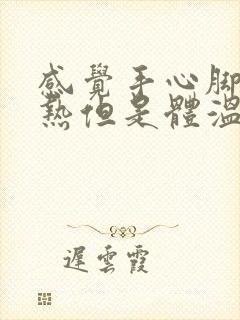 感覺手心腳
熱但是體溫
遲雲霞